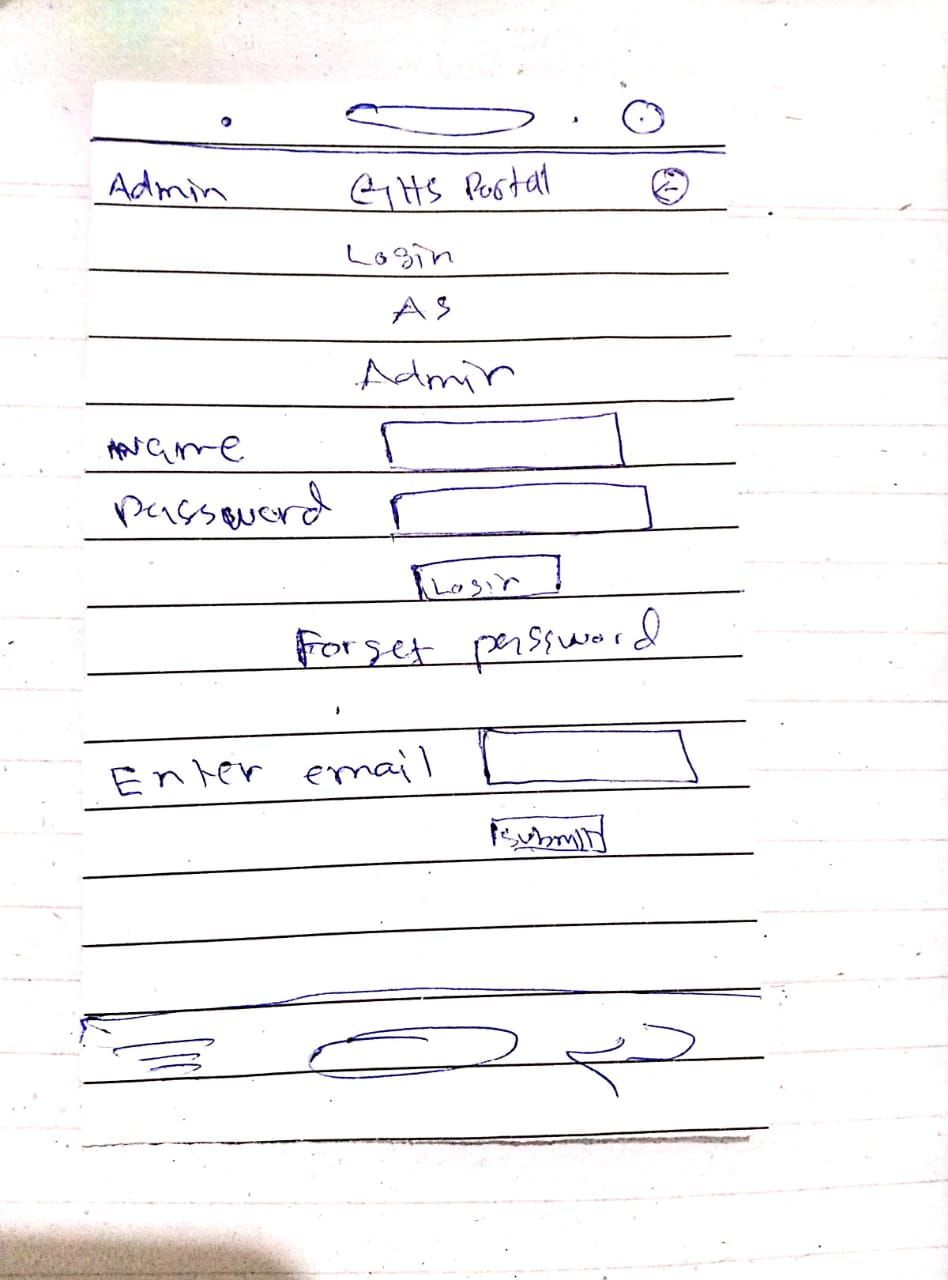 Admin GHS Portal
Login
As
Admin
Name
Password
Login
Forget password
Enter email
Submit